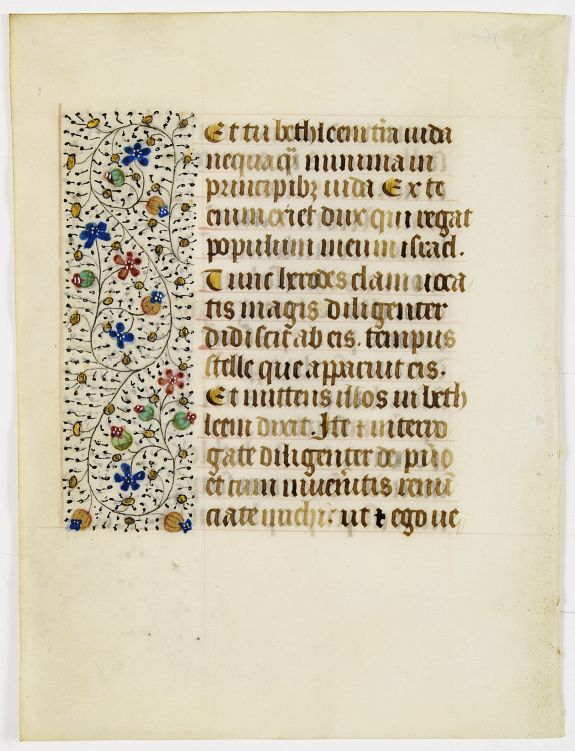 Et tu bethleem t̄ra iuda
nequaq̄ȝ minima in
principibȝ iuda Ex te
enim exiet dux qui regat
populum meum israel.
Tunc herodes clam uoca
tis magis diligenter
didiscit ab eis. tempus
stelle que apparuit eis.
Et mittens illos in beth
leem dixit. Ite ⁊ interro
gate diligenter de pu̅o
et cum inueneritis renū
ciate michi. ut ⁊ ego ue